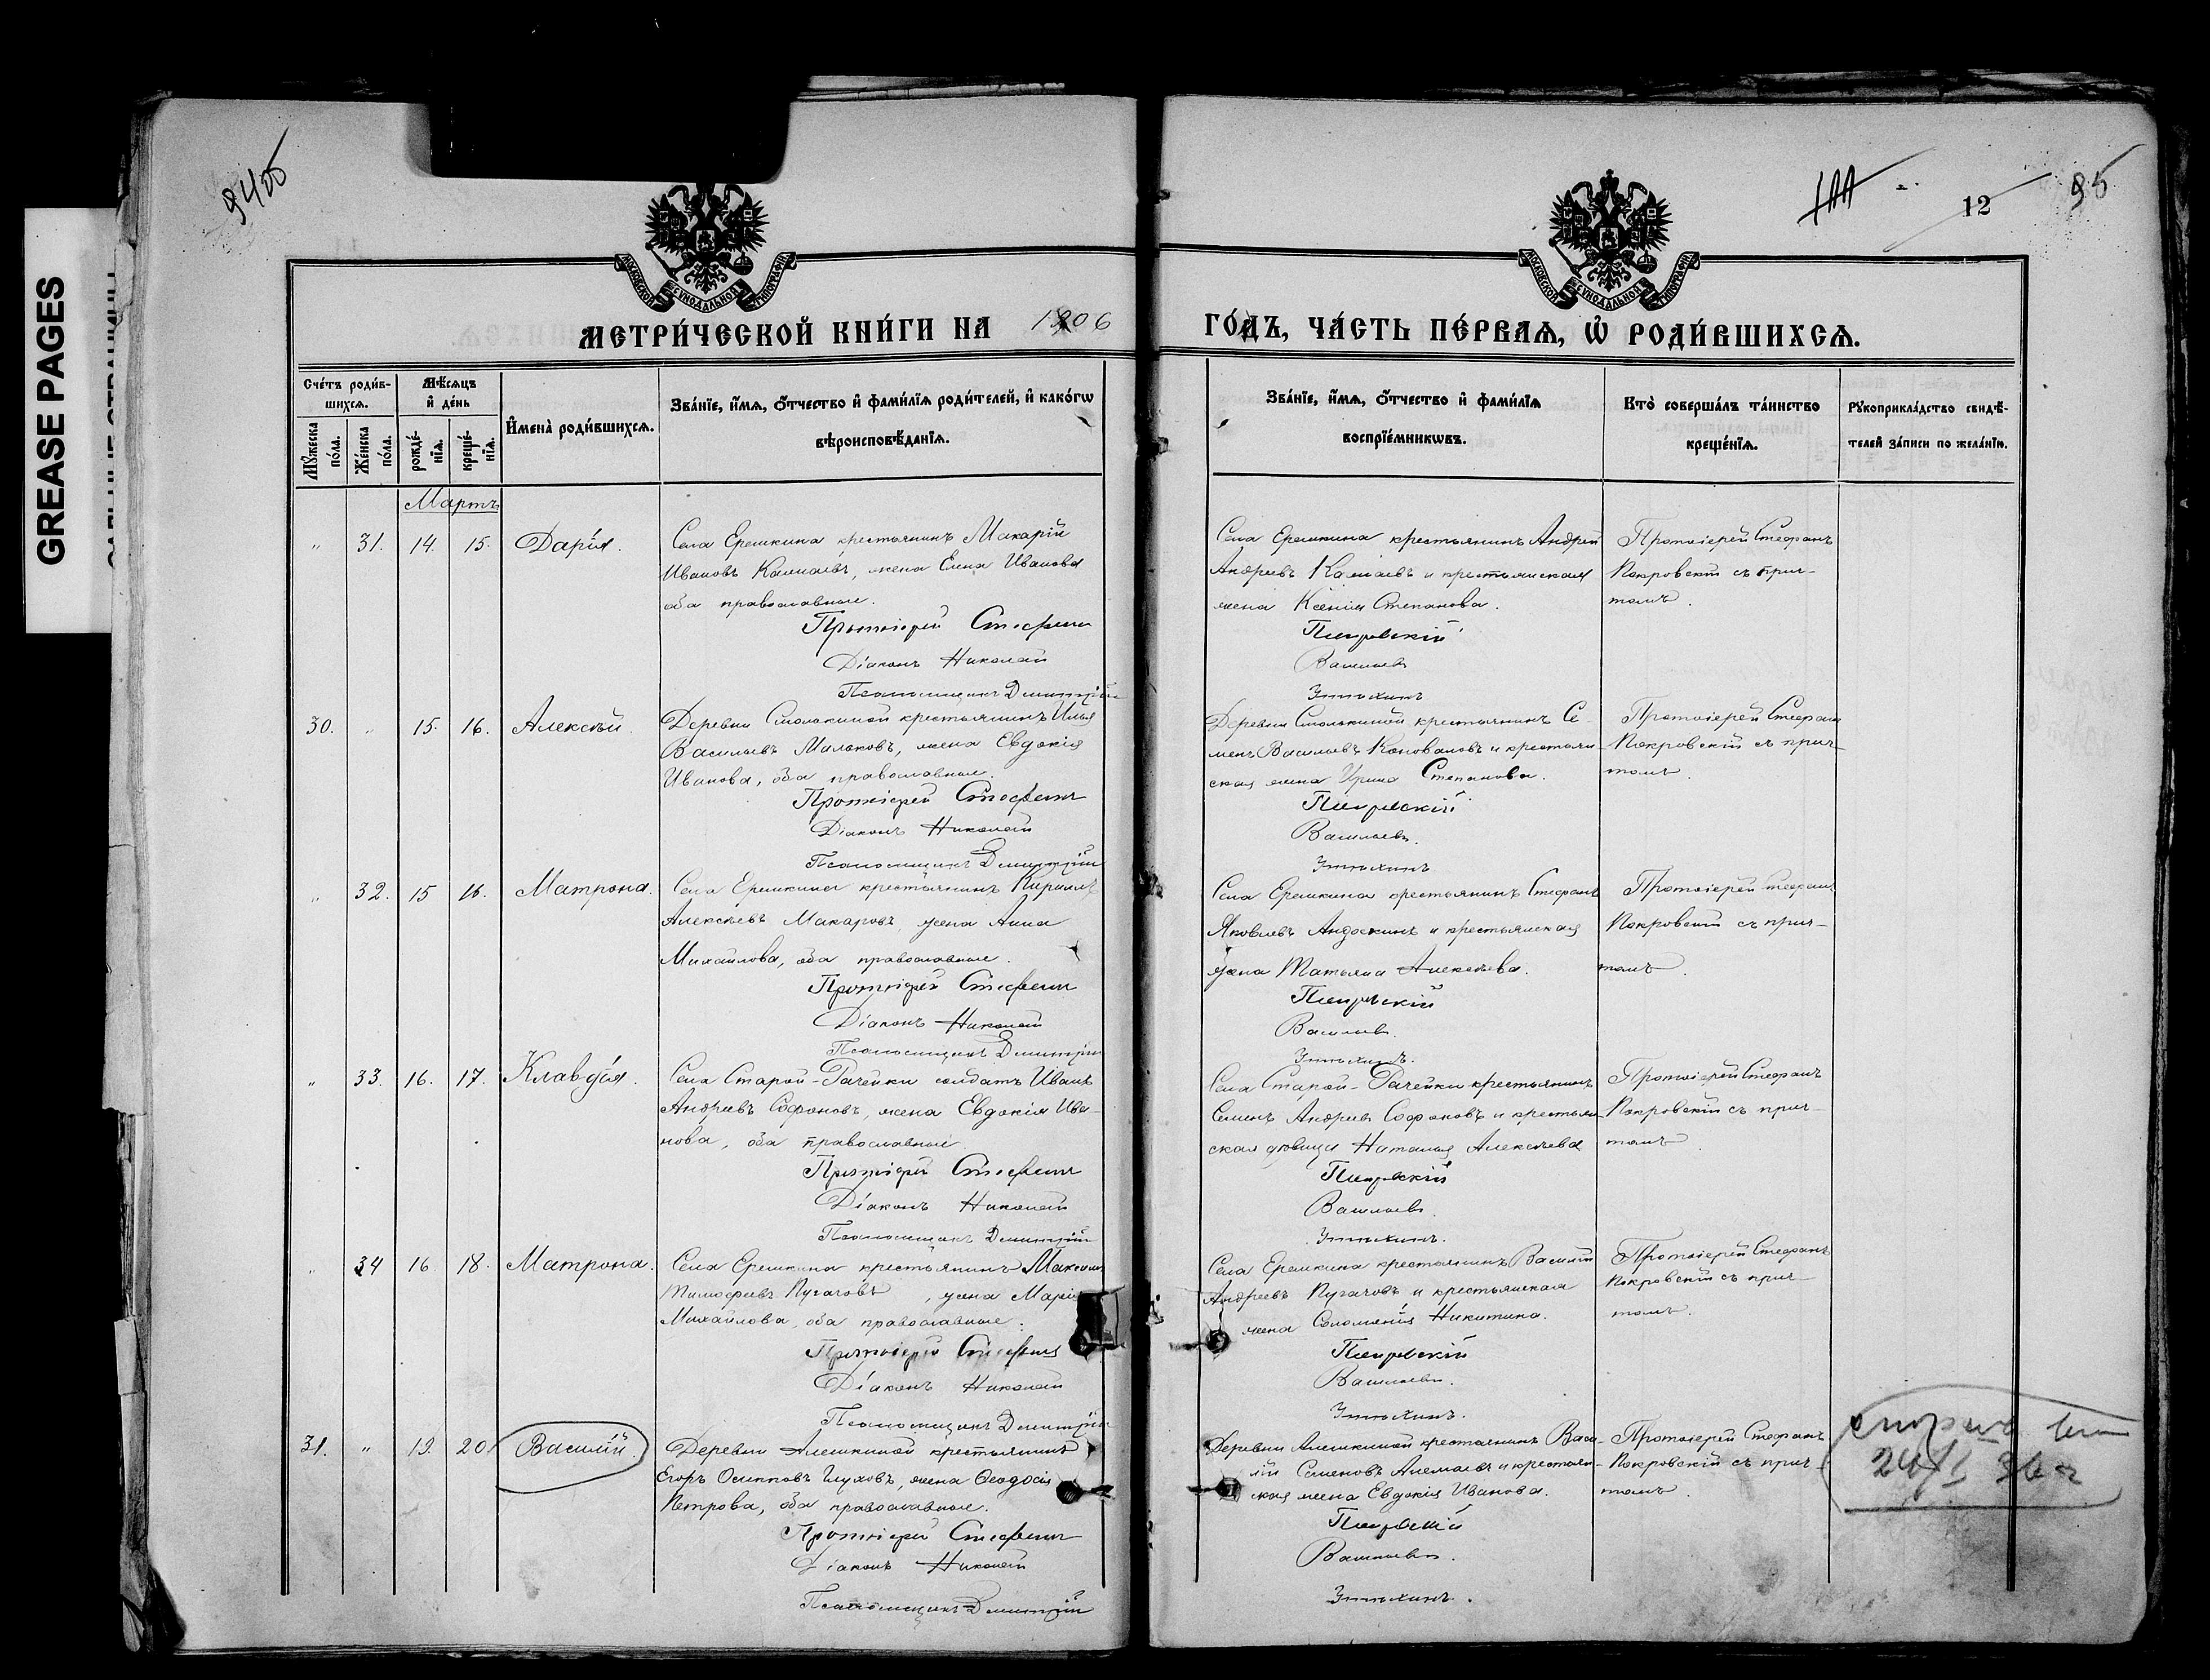 GREASE PAGES
95
12
МОСКОВСКОЙ СѴНОДАЛЬНОЙ ТИПОГРАФІИ
МОСКОВСКОЙ СѴНОДАЛЬНОЙ ТИПОГРАФІИ
МЕТРИ́ЧЕСКОЙ КНИ́ГИ НА 1906
ГО́ДЪ, ЧА́СТЬ ПЕ́РВАѦ, Ѡ҆ РОДИ́ВШИХСѦ.
Сче́тъ роди́в-
шихсѧ.
Мꙋ́жеска по́ла.
Же́нска по́ла.
Мѣ́сѧцъ
и҆ де́нь
рожде́-
нїѧ.
креще́-
нїѧ.
И҆мена̀ роди́вшихсѧ.
Зва́нїе, и҆́мѧ, ѻ҆́тчество и҆ фами́лїѧ роди́телей, и҆ како́гѡ
вѣроисповѣ́данїѧ.
Зва́нїе, и҆́мѧ, ѻ҆́тчество и҆ фами́лїѧ
воспрїе́мникѡвъ.
Кто̀ соверша́лъ та́инство
креще́нїѧ.
Рꙋкоприкла́дство свидѣ́-
телей за́писи по жела́нїю.
Мартъ
" 31. 14. 15. Дарія.
Села Еремкина крестьянинъ Макарій
Ивановъ Калмаевъ, жена Елена Иванова
оба православные.
Протоіерей Стефанъ
Діаконъ Николай
Псаломщикъ Димитрій
Села Еремкина крестьянинъ Андрей
Андреевъ Калмаевъ и крестьянская
жена Ксенія Степанова.
Покровскій
Васильевъ
Протоіерей Стефанъ
Покровскій съ прич-
томъ.
30. " 15. 16. Алексѣй.
Деревни Смолькиной крестьянинъ Илья
Васильевъ Милаковъ, жена Евдокія
Иванова, оба православные.
Протоіерей Стефанъ
Діаконъ Николай
Псаломщикъ Димитрій
Деревни Смолькиной крестьянинъ Се-
менъ Васильевъ Коноваловъ и крестьян
ская жена Ирина Степанова.
Покровскій
Васильевъ.
Протоіерей Стефанъ
Покровскій съ прич-
томъ.
" 32. 15 16. Матрона.
Села Еремкина крестьянинъ Кириллъ
Алексѣевъ Макаровъ, жена Анна
Михайлова, оба православные.
Протоіерей Стефанъ
Діаконъ Николай
Псаломщикъ Димитрій
Села Еремкина крестьянинъ Стефанъ
Яковлевъ Андоскинъ и крестьянская
жена Татьяна Алексѣева.
Покровскій
Васильевъ.
Протоіерей Стефанъ
Покровскій съ прич-
томъ.
" 33. 16. 17. Клавдія.
Села Старой-Рачейки солдатъ Иванъ
Андреевъ Софоновъ, жена Евдокія Ива-
нова, оба православные
Протоіерей Стефанъ
Діаконъ Николай
Псаломщикъ Димитрій
Села Старой-Рачейки крестьянинъ
Семенъ Андреевъ Софоновъ и крестьян
ская дѣвица Наталья Алексѣева
Покровскій
Васильевъ.
Протоіерей Стефанъ
Покровскій съ прич-
томъ.
" 34 16. 18. Матрона.
Села Еремкина крестьянинъ Максимъ
Тимофеевъ Пугачовъ, жена Марія
Михайлова, оба православные.
Протоіерей Стефанъ
Діаконъ Николай
Псаломщикъ Димитрій
Села Еремкина крестьянинъ Василій
Андреевъ Пугачовъ и крестьянская
жена Соломонія Никитина.
Покровскій
Васильевъ.
Протоіерей Стефанъ
Покровскій съ прич-
томъ.
31. " 19. 20. Василій.
Деревни Алешкиной крестьянинъ
Егоръ Осиповъ Глуховъ, жена Ѳеодосія
Петрова, оба православные.
Протоіерей Стефанъ
Діаконъ Николай
Псаломщикъ Димитрій
Деревни Алешкиной крестьянинъ Васи-
лій Семеновъ Алемаевъ и крестьян-
ская жена Евдокія Иванова.
Покровскій
Васильевъ.
Протоіерей Стефанъ
Покровскій съ прич-
томъ.